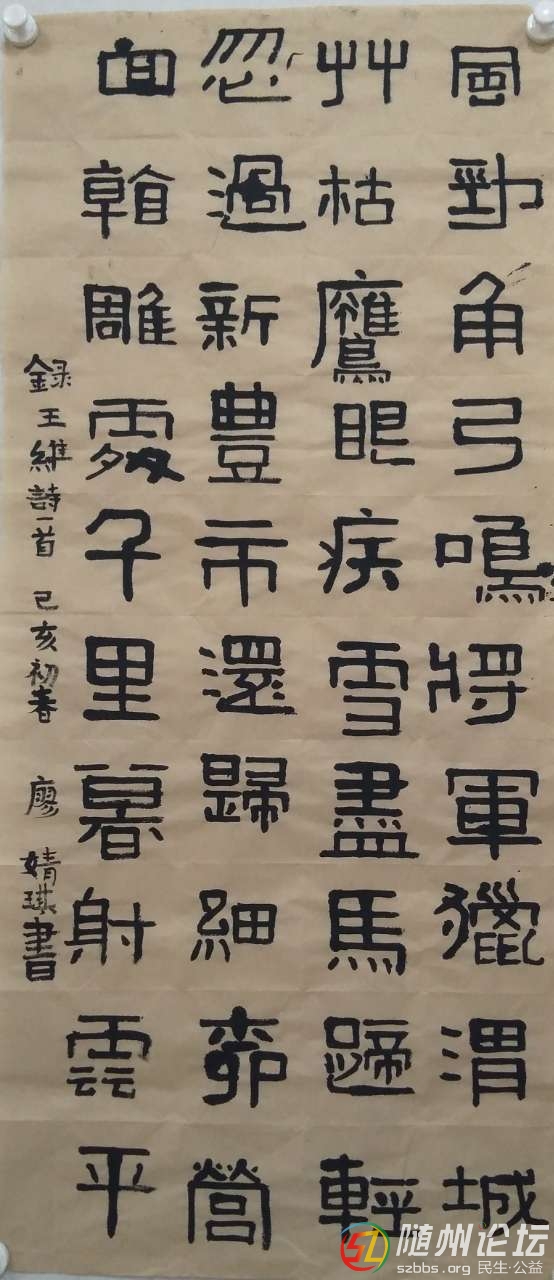 風勁角弓鳴將軍獵渭城
艸枯鷹眼疾雪盡馬蹄輕
忽過新豐市還歸細柳營
回看雕處千里暮射雲平
錄王維詩一首 己亥初春 廖婧琪書
随州论坛
szbbs.org 民生·公益